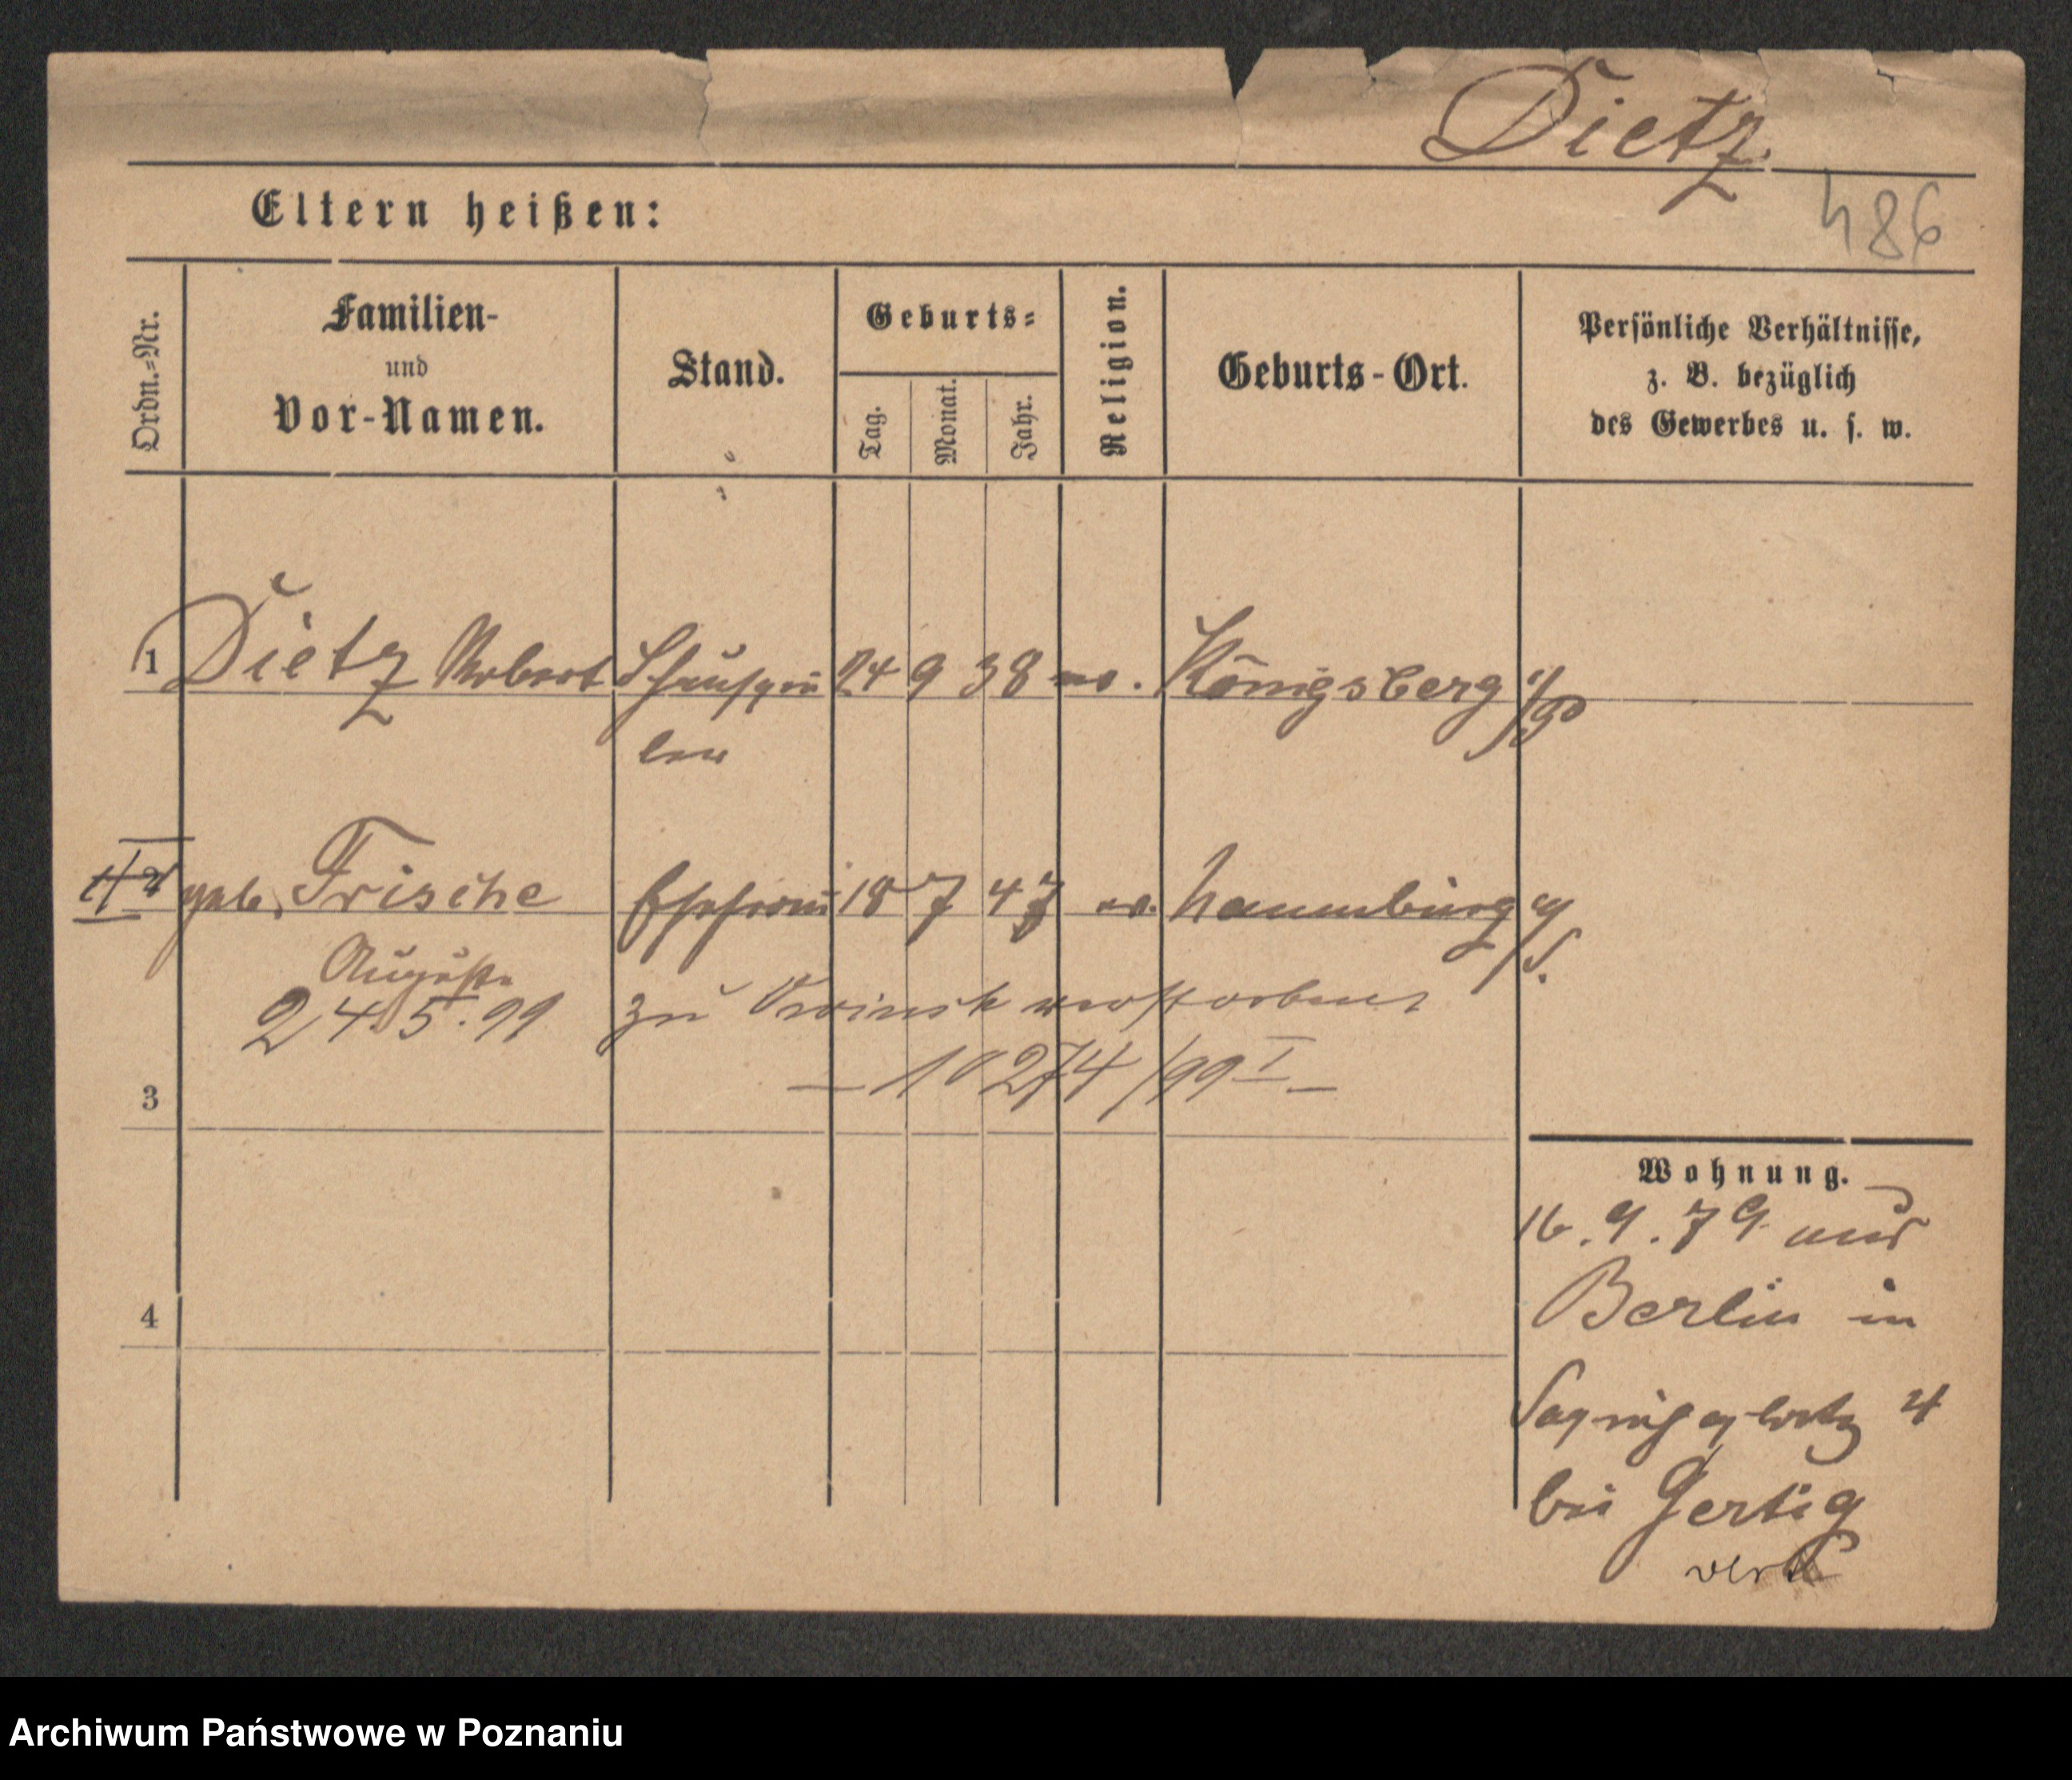 Dietz.
486
Eltern heißen:
Ordn.-Nr.
Familien-
und
Vor-Namen.
Stand.
Geburts-
Tag.
Monat.
Jahr.
Religion.
Geburts-Ort.
Persönliche Verhältnisse,
z. B. bezüglich
des Gewerbes u. s. w.
1 Dietz Robert Schauspie 24 9 38 ev. Königsberg i/Pr
ler
2 geb. Frische Ehefrau 18 7 47 ev. Naumburg a/
S.
Auguste
24.5.99 zu Owinsk verstorben
— 10274/99 I —
3
Wohnung.
16.9.79 aus
Berlin in
4
Sapiehaplatz 4
bei Gertig